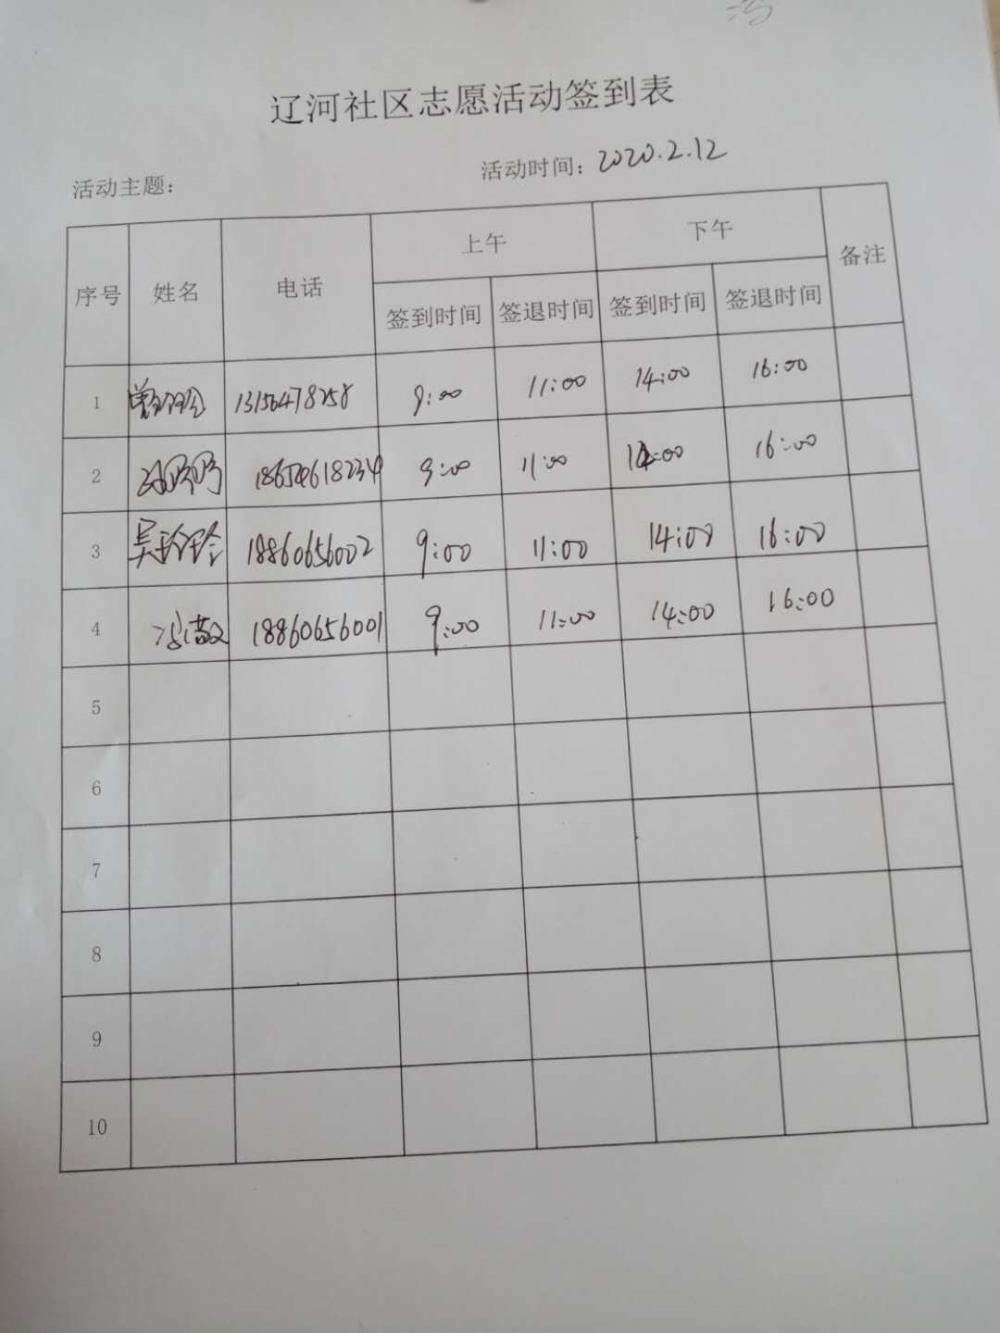 辽河社区志愿活动签到表
活动主题： 活动时间：2020.2.12
序号 姓名 电话 上午 下午 备注
签到时间 签退时间 签到时间 签退时间
1 13156478258 9:00 11:00 14:00 16:00
2 18654618234 9:00 11:00 14:00 16:00
3 吴玲玲 18860656002 9:00 11:00 14:00 16:00
4 18860656001 9:00 11:00 14:00 16:00
5
6
7
8
9
10